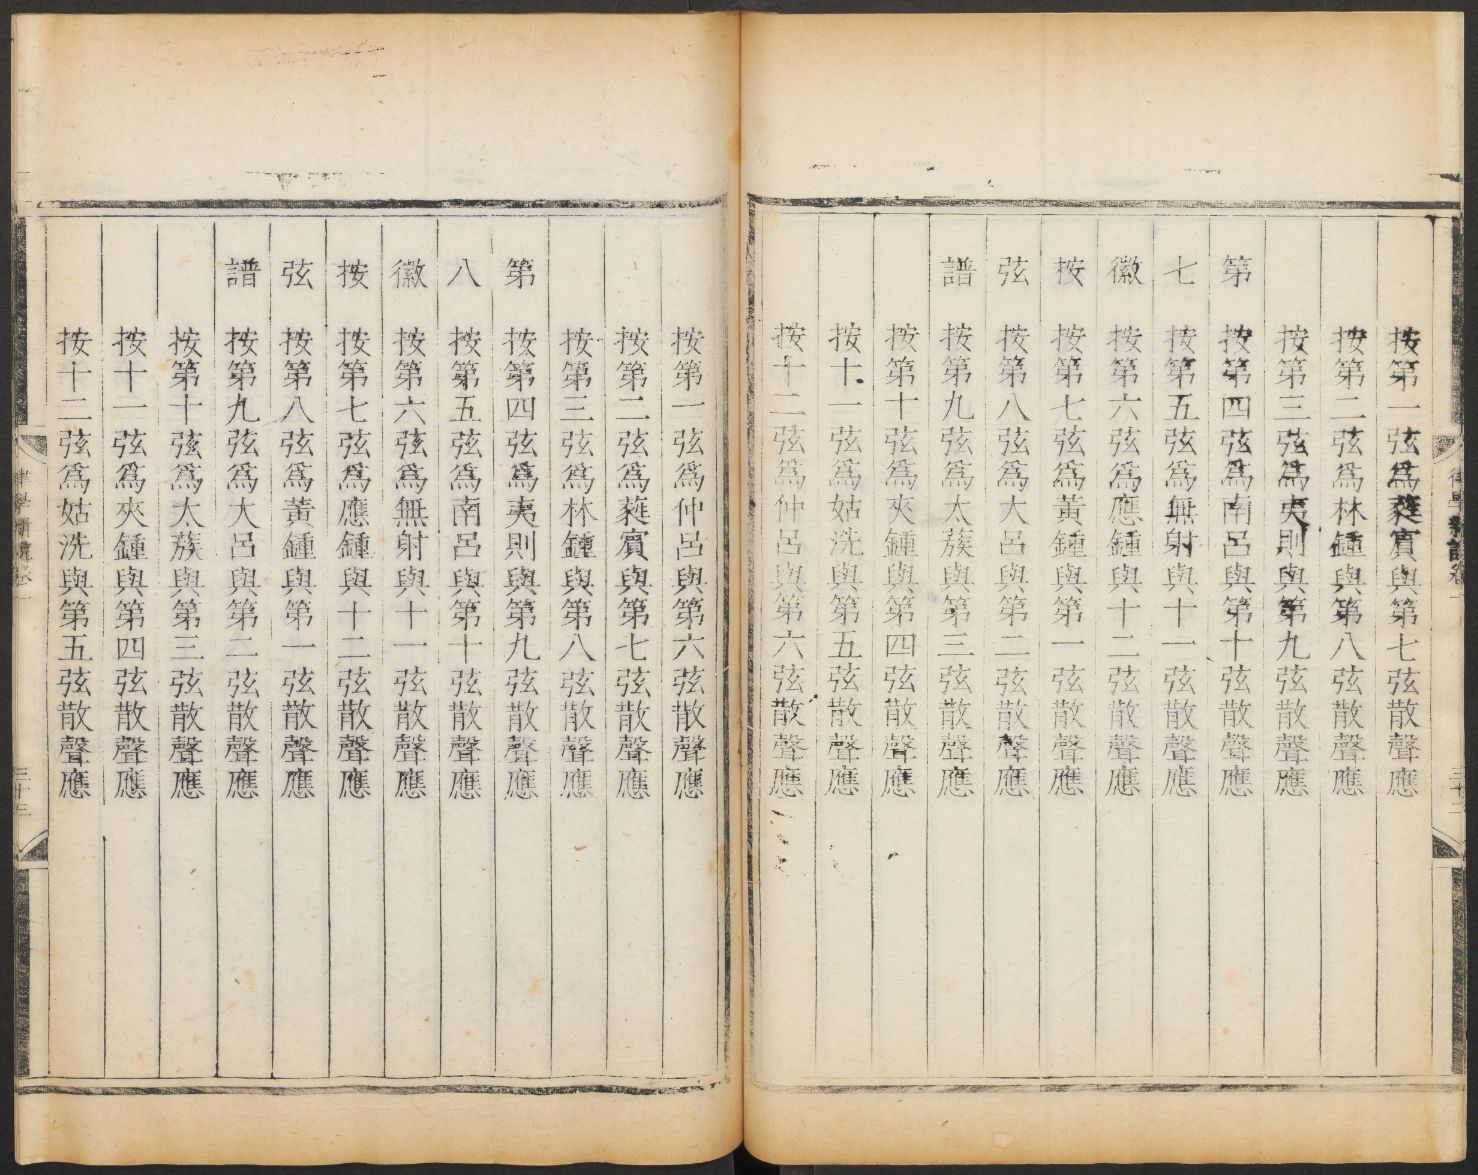 律學新說卷一
三十二
第七徽按弦譜
按第一弦爲蕤賓與第七弦散聲應
按第二弦爲林鍾與第八弦散聲應
按第三弦爲夷則與第九弦散聲應
按第四弦爲南呂與第十弦散聲應
按第五弦爲無射與十一弦散聲應
按第六弦爲應鍾與十二弦散聲應
按第七弦爲黃鍾與第一弦散聲應
按第八弦爲大呂與第二弦散聲應
按第九弦爲太蔟與第三弦散聲應
按第十弦爲夾鍾與第四弦散聲應
按十一弦爲姑洗與第五弦散聲應
按十二弦爲仲呂與第六弦散聲應
第八徽按弦譜
按第一弦爲仲呂與第六弦散聲應
按第二弦爲蕤賓與第七弦散聲應
按第三弦爲林鍾與第八弦散聲應
按第四弦爲夷則與第九弦散聲應
按第五弦爲南呂與第十弦散聲應
按第六弦爲無射與十一弦散聲應
按第七弦爲應鍾與十二弦散聲應
按第八弦爲黃鍾與第一弦散聲應
按第九弦爲大呂與第二弦散聲應
按第十弦爲太蔟與第三弦散聲應
按十一弦爲夾鍾與第四弦散聲應
按十二弦爲姑洗與第五弦散聲應
律學新說卷一
三十三